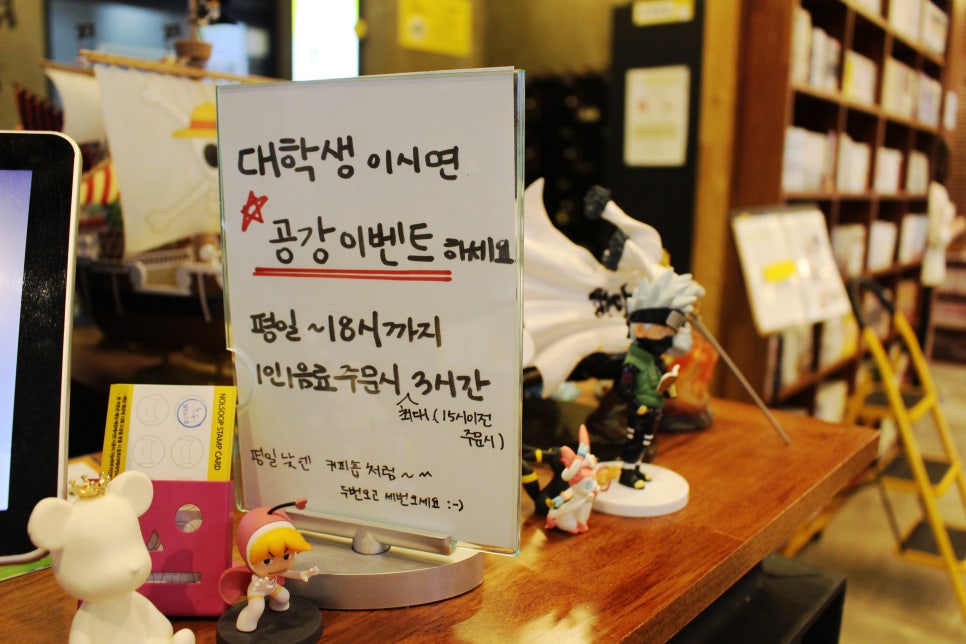 대학생 이시면
공강이벤트 하세요
평일 ~18시까지
1인1음료 주문시 3시간
최대 (15시이전
주문시)
평일 낮엔 커피숍 처럼~^^
두번오고 세번오세요 :-)
NOLSOOP STAMP CARD